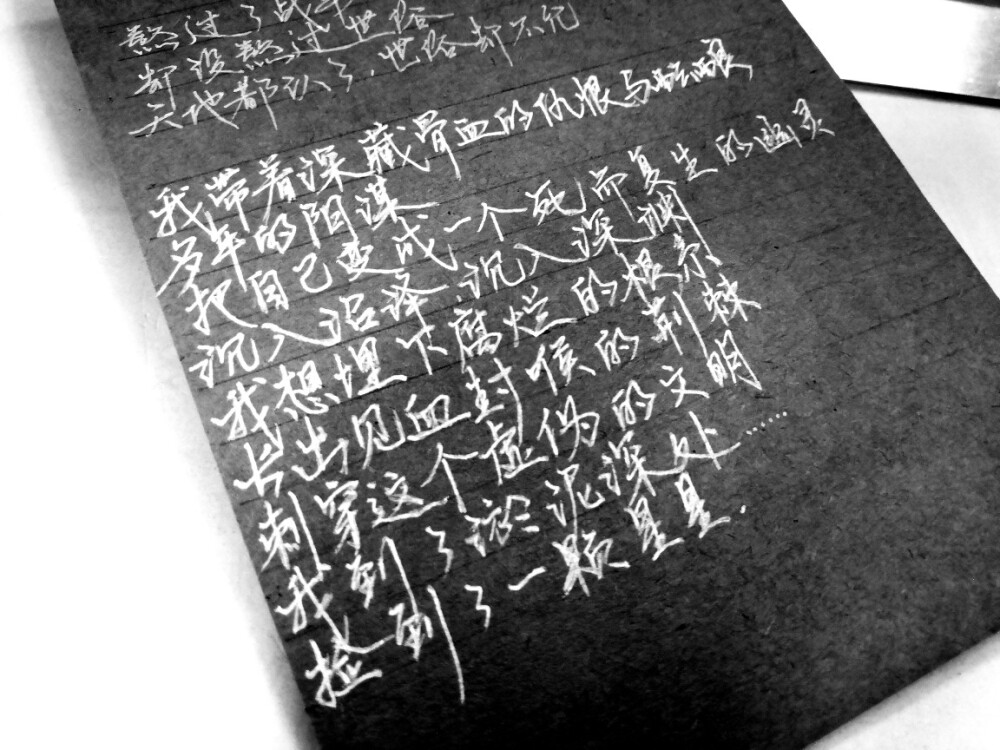 熬过了战争
却没熬过世俗
天地都认了、世俗却不允
我带着深藏骨血的仇恨与酝酿
多年的阴谋
把自己变成一个死而复生的幽灵
沉入沼泽、沉入深渊
我想埋下腐烂的根系
长出见血封候的荆棘
刺穿这个虚伪的文明
我到了淤泥深处……
捡到了一颗星星.